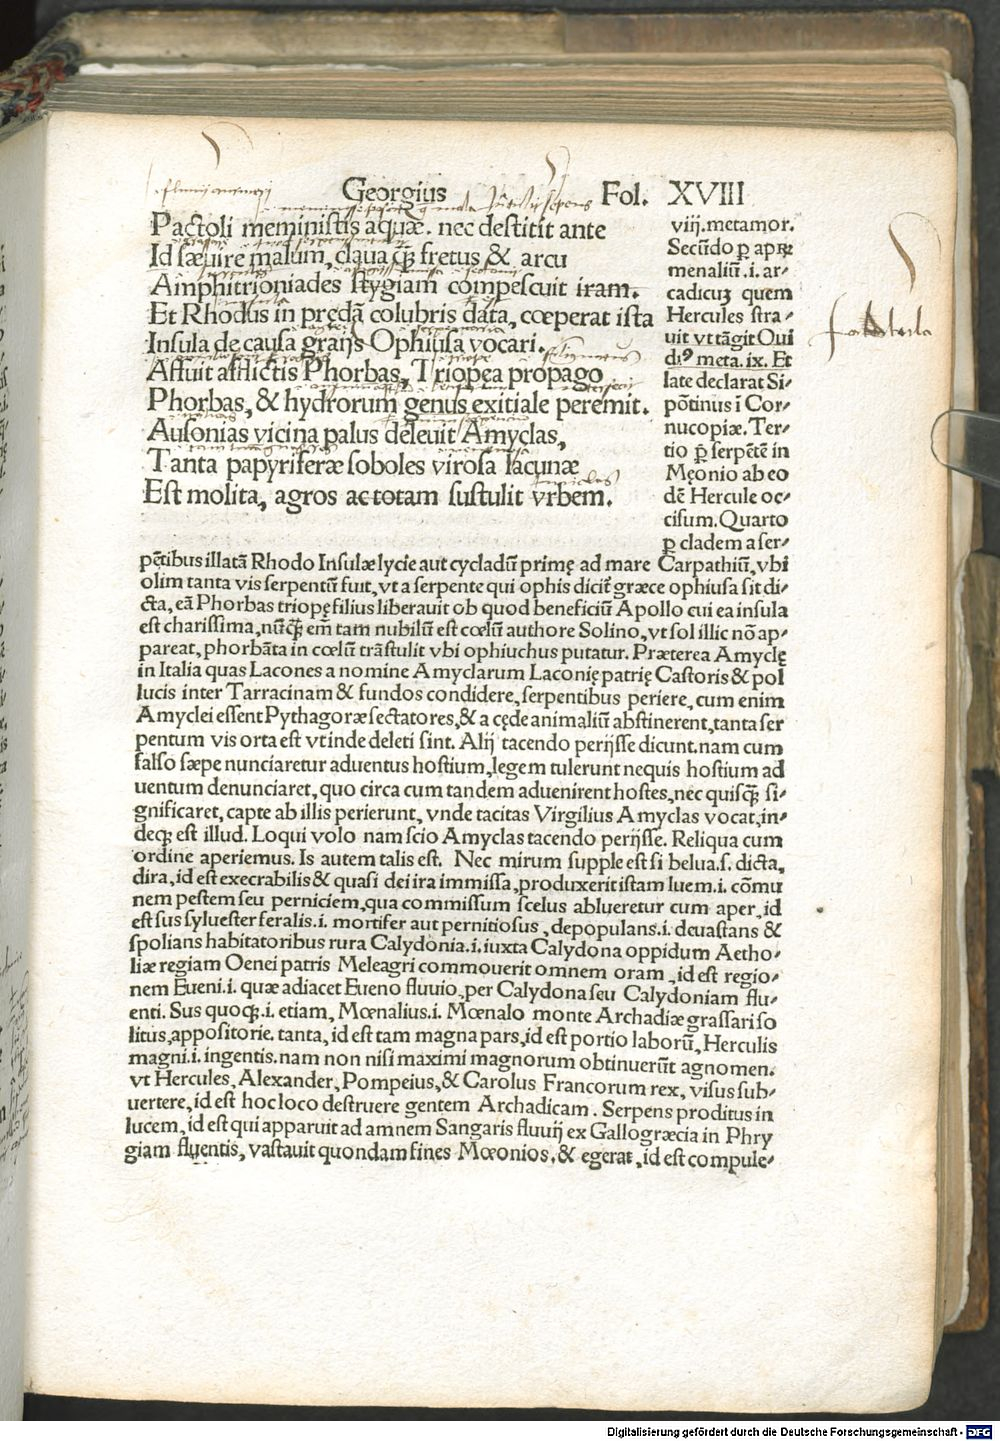 Georgius Fol. XVIII
Pactoli meministis aquæ. nec destitit ante
Id sæuire malum, claua q̃ꝫ fretus & arcu
Amphitrioniades stygiam compescuit iram.
Et Rhodus in prędã colubris data, cœperat ista
Insula de causa graijs Ophiusa vocari.
Affuit afflictis Phorbas, Triopea propago
Phorbas, & hydrorum genus exitiale peremit.
Ausonias vicina palus deleuit Amyclas,
Tanta papyriferæ soboles virosa lacunæ
Est molita, agros ac totam sustulit vrbem.
viij. metamor.
Secũdo ꝑ aprꝫ
menaliũ .i. ar-
cadicuꝫ quem
Hercules stra-
uit vt tãgit Oui
diꝰ meta. ix. Et
late declarat Si-
põtinus ĩ Cor-
nucopiæ. Ter-
tio ꝑ serpẽtẽ in
Męonio ab eo
dẽ Hercule oc-
cisum. Quarto
ꝑ cladem a ser-
pẽtibus illatã Rhodo Insulæ lycie aut cycladũ primę ad mare Carpathiũ, vbi
olim tanta vis serpentũ fuit, vt a serpente qui ophis dicit̃ græce ophiusa sit di-
cta, eã Phorbas triopę filius liberauit ob quod beneficiũ Apollo cui ea insula
est charissima, nũq̃ꝫ em̃ tam nubilũ est cœlũ authore Solino, vt sol illic nõ ap-
pareat, phorbãta in cœlũ trãstulit vbi ophiuchus putatur. Præterea Amyclę
in Italia quas Lacones a nomine Amyclarum Laconię patrię Castoris & pol
lucis inter Tarracinam & fundos condidere, serpentibus periere, cum enim
Amyclei essent Pythagoræ sectatores, & a cęde animaliũ abstinerent, tanta ser
pentum vis orta est vt inde deleti sint. Alij tacendo perijsse dicunt. nam cum
falso sæpe nunciaretur aduentus hostium, legem tulerunt nequis hostium ad
uentum denunciaret, quo circa cum tandem aduenirent hostes, nec quisq̃ꝫ si-
gnificaret, capte ab illis perierunt, vnde tacitas Virgilius Amyclas vocat, in-
deqꝫ est illud. Loqui volo nam scio Amyclas tacendo perijsse. Reliqua cum
ordine aperiemus. Is autem talis est. Nec mirum supple est si belua .s. dicta,
dira, id est execrabilis & quasi dei ira immissa, produxerit istam luem .i. cõmu
nem pestem seu perniciem, qua commissum scelus ablueretur cum aper, id
est sus syluester feralis .i. mortifer aut pernitiosus, depopulans .i. deuastans &
spolians habitatoribus rura Calydonia .i. iuxta Calydona oppidum Aetho-
liæ regiam Oenei patris Meleagri commouerit omnem oram, id est regio-
nem Eueni .i. quæ adiacet Eueno fluuio, per Calydona seu Calydoniam flu-
enti. Sus quoqꝫ .i. etiam, Mœnalius .i. Mœnalo monte Archadiæ grassari so
litus, appositorie. tanta, id est tam magna pars, id est portio laborũ, Herculis
magni .i. ingentis. nam non nisi maximi magnorum obtinuerũt agnomen.
vt Hercules, Alexander, Pompeius, & Carolus Francorum rex, visus sub-
uertere, id est hoc loco destruere gentem Archadicam. Serpens proditus in
lucem, id est qui apparuit ad amnem Sangaris fluuij ex Gallogræcia in Phry
giam fluentis, vastauit quondam fines Mœonios, & egerat, id est compule-
Digitalisierung gefördert durch die Deutsche Forschungsgemeinschaft - DFG